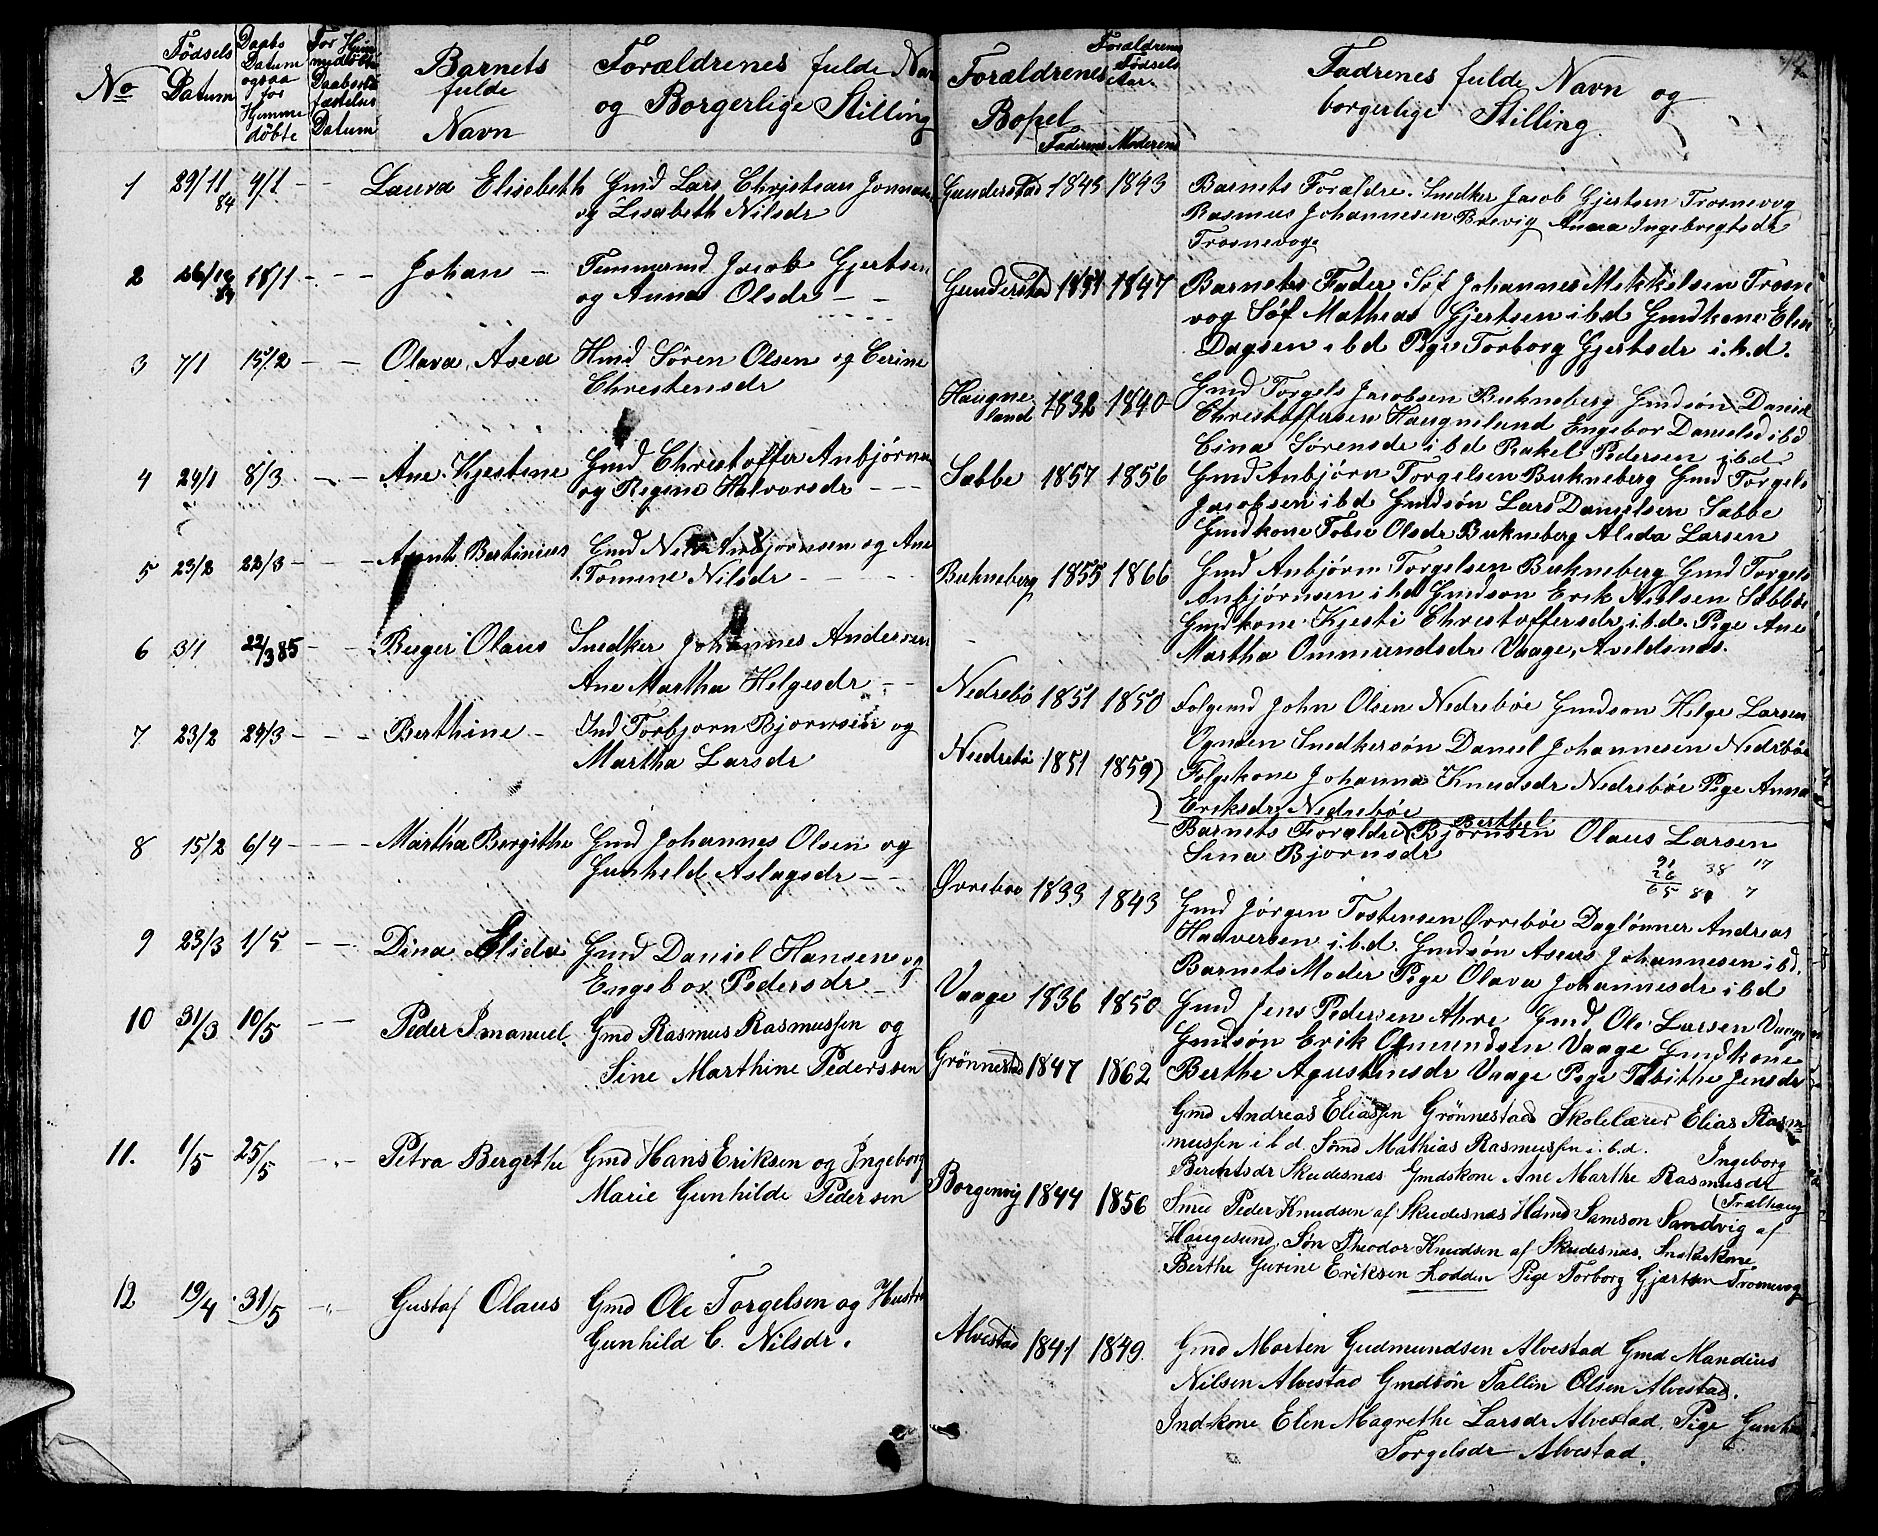 No
Fødsels Datum
Daabs Datum ogsaa for Hjemme døbte
For Hjem medøbte Daabsstad fæstelses Datum
Barnets fulde Navn
Forældrenes fulde Nav
og Borgerlige Stilling
Forældrenes Bopel
Forældrenes Fødsels Aar
Faderens Moderens
Fadrenes fulde Navn og
borgerlige Stilling
1 29/11 84 4/1 - - Laura Elisebeth Gmd Lars Christian Jonnas
og Lisabeth Nilsdr
Gunderstad 1845 1843 Barnets Forældre. Snedker Jacob Gjertsen Trosnevog
Rasmus Johannesen Brevig Anna Ingebrigtsdr
Trosnevoge
2 26/12 84 18/1 - - Johan - Tømmermd Jacob Gjertsen
og Anna Olsdr - -
Gunderstad 1851 1847 Barnets Fader Søf Johannes Mikkelsen Trosne
vog Søf Mathias Gjertsen i b d Gmdkone Elen
Dagsen i b d Pige Torborg Gjertsdr i.b.d.
3 7/1 15/2 - - Olava Asea Hmd Sören Olsen og Cerine
Christensdr
Haugne
land 1832 1840 Gmd Torgels Jacobsen Bukneberg Gmdsön Daniel
Christoffersen Haugneland Engebor Danielsd i bd
Cina Sørensdr i b d Rakel Pedersen i b d
4 24/1 8/3 - - Ane Kjestine Gmd Christoffer Anbjørns
og Regine Halvorsdr - -
Sæbbe 1857 1856 Gmd Anbjörn Torgelsen Bukneberg Gmd Torgels
Jacobsen i b d Gmdsøn Lars Danielsen Sæbbe
Gmdkone Olsdr Bukneberg Alida Larsen
5 23/2 22/3 - - Bertinius Gmd Nils Anbjørnsen og Ane
Tomine Nilsdr - - -
Bukneberg 1855 1866 Gmd Anbjørn Torgelsen Bukneberg Gmd Torgels
Anbjørnsen i b d Gmdson Erik Nielsen Sæbbe
Gmdkone Kjesti Christoffersdr i.b.d. Pige Ane
Martha Ommundsdr Vaage, Aveldsnæs.
6 3/1 22/3 85 - - Berger Olaus Snedker Johannes Andersen
Ane Martha Helgesdr - -
Nedrebø 1851 1850 Folgemd John Olsen Nedrebøe Gmdson Helge Larsen
Ognøen Snedkersøn Daniel Johannesen Nedrebøe
7 23/2 29/3 - - Berthine - Ind Torbjorn Bjornsen og
Martha Larsdr
Nedrebö 1851 1859 Følgekone Johanna Knudsdr Nedrebøe Pige Anna
Eriksdr Nedrebøe
Barnets Forældre Berthel Bjørnsen Olaus Larsen
Sina Bjornsdr
8 15/2 6/4 - - - Martha Bergithe Gmd Johannes Olsen og
Gunheld Aslagsdr - -
Ørrebøe 1833 1843 Gmd Jörgen Tostensen Ørrebøe Daglønner Andreas
Haaversen i.b.d. Gmdsøn Aseus Johannesen i b d.
Barnets Moder Pige Olava Johannesdr i b d
9 23/3 1/5 - - Dina Elida Gmd Daniel Hansen og
Engebor Pedersdr -
Vaage 1836 1850 Gmd Jens Pedersen Ahre Gmd Ole Larsen Vaage
Gmdsön Erik Omundsen Vaage Gmdkone
Berthe Agustinusdr Vaage Pige Tabithe Jensdr
10 31/3 10/5 - - Peder Imanuel Gmd Rasmus Rasmussen og
Sine Marthine Pederssen
Grönnestad 1847 1862 Gmd Andreas Eliassen Grönnestad Skolelærer Elias Rasm
mussen i b d Sømd Mathias Rasmussen i.b.d. Ingeborg
Berentsdr Skudesnæs Gmdskone Ane Marthe Rasmusdr
11. 1/5 25/5 - - Petra Bergithe Gmd Hans Eriksen og Ingeborg
Marie Gunhilde Pedersen
Borgenvig 1844 1856 Smed Peder Knudsen af Skudesnæs Hdmd Samson Sandvig af
Haugesund, Søn Theodor Knudsen af Skudesnæs.
Berthe Gurine Eriksen Lodden Pige Torborg Gjærtsen Trosnevog
12 19/4 31/5 - - Gustaf Olaus Gmd Ole Torgelsen og Hustru
Gunhild C. Nilsdr.
Alvestad 1841 1849. Gmd Morten Gudmundsen Alvestad Gmd Mandius
Nilsen Alvestad Gmdsön Tallin Olsen Alvestad.
Indkone Elen Magrethe Larsdr Alvestad. Pige Gunhil
Torgelsdr Alvestad.